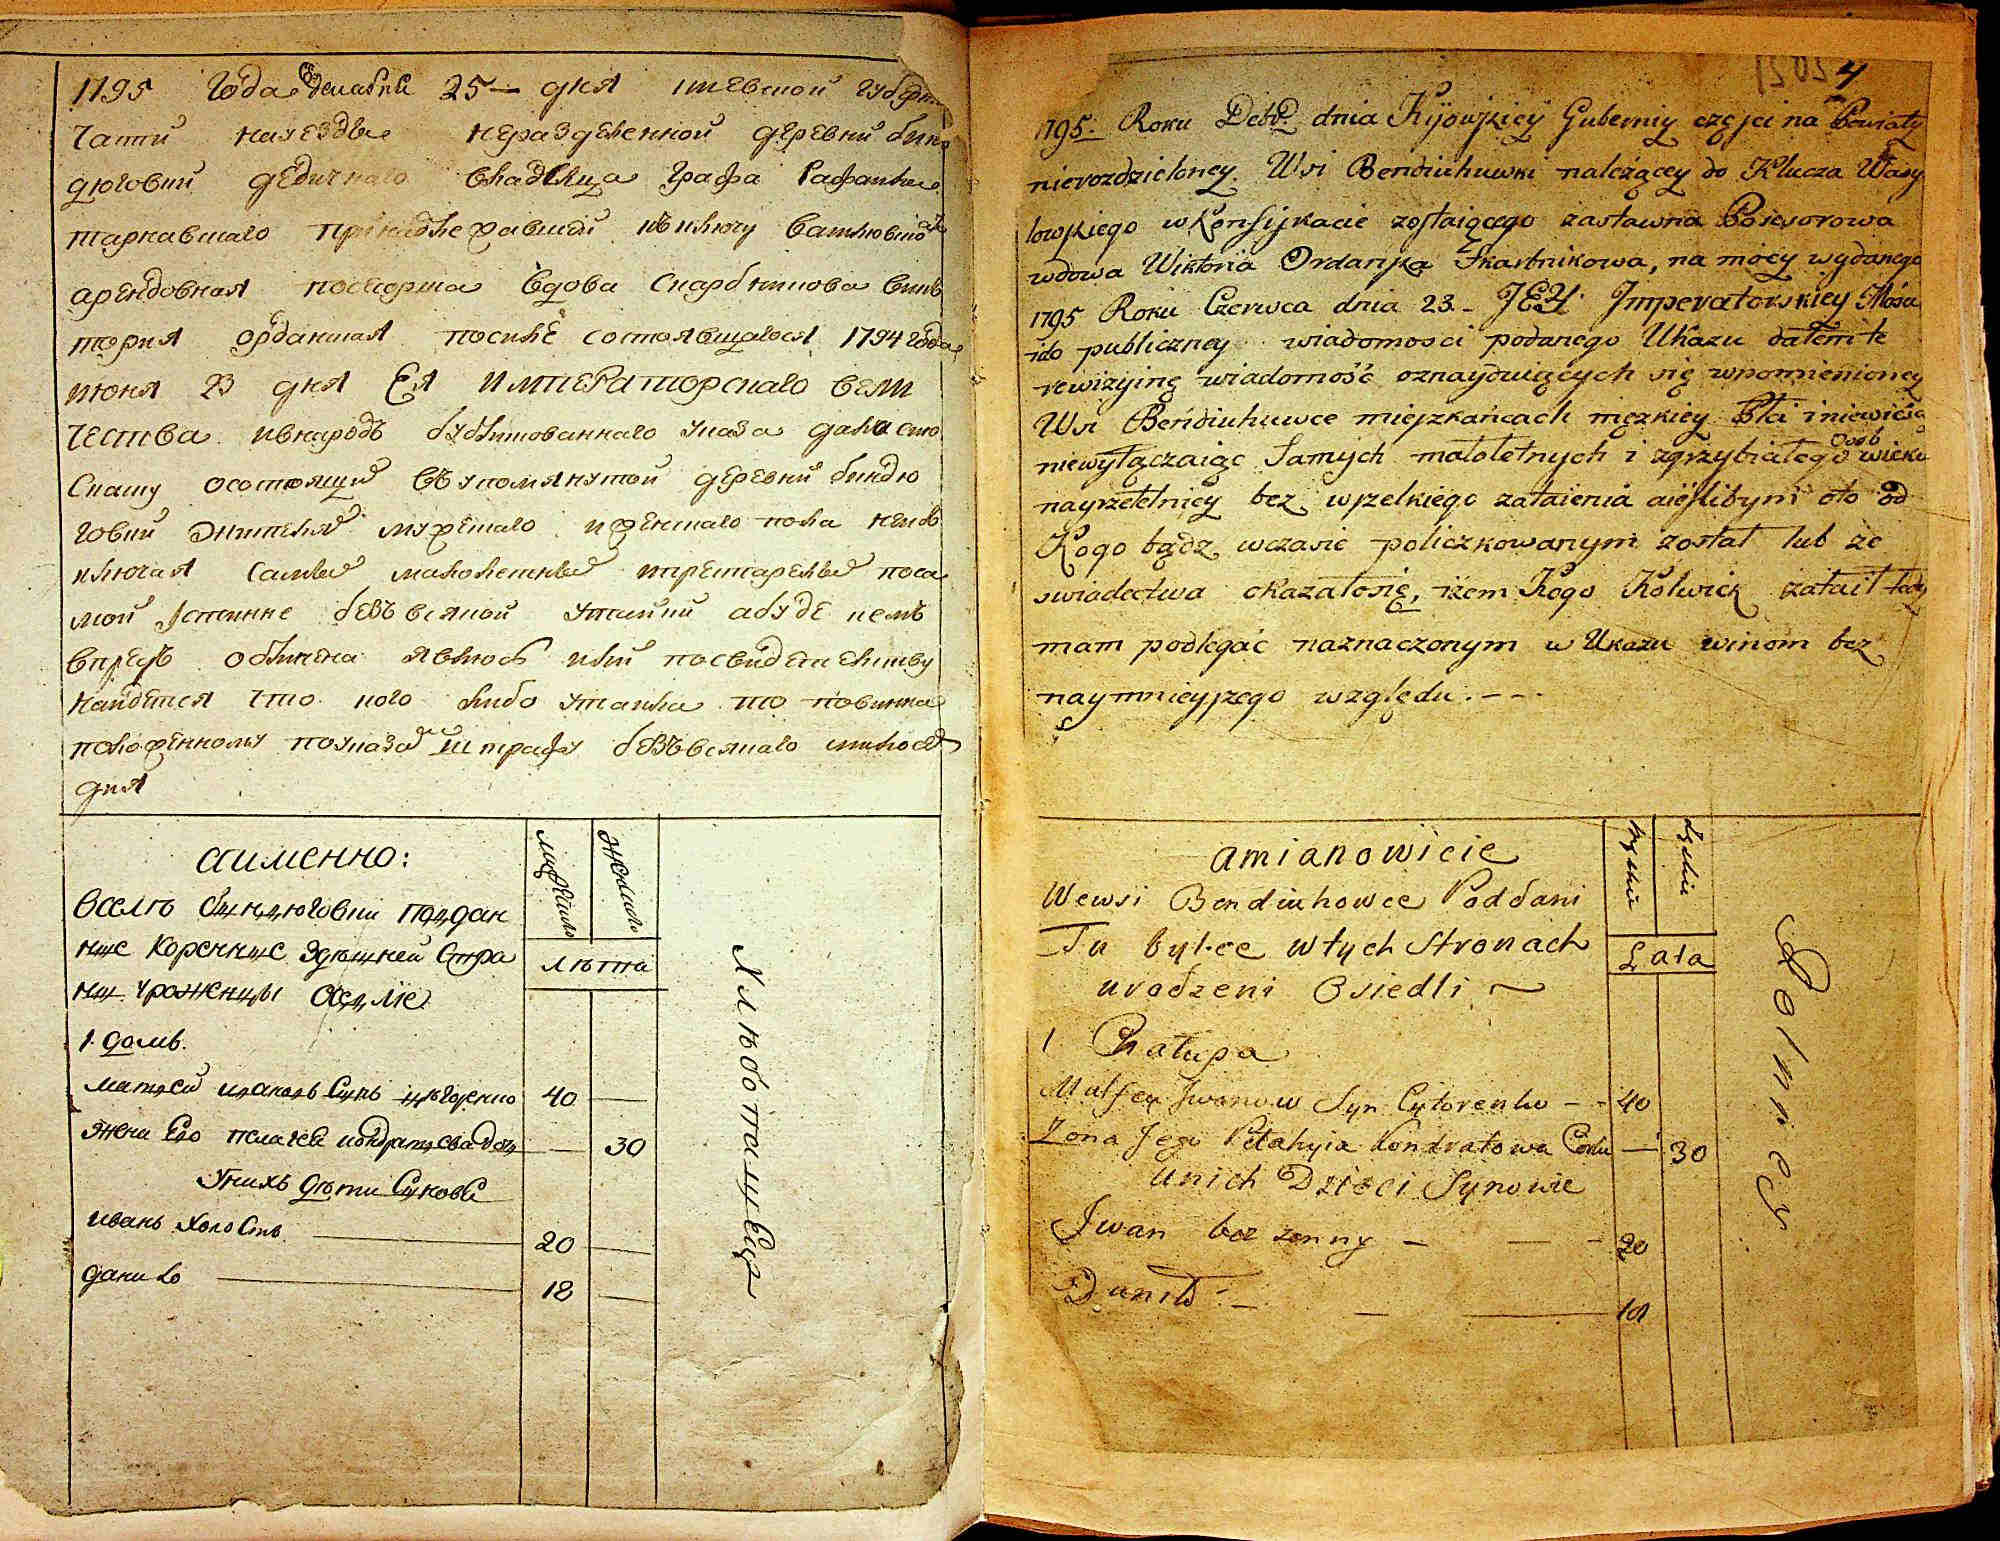 1795 года декабря 25 дня киевской губерн
части науезды неразделенной деревни бин
дюговки дедичнаго владелца графа
принадлежавшей къ ключу
арендовная вдова
тория орданская посиле состоявшагося 1794 года
июня 23 дня Ея императорскаго вели
чества ивнародъ публикованнаго указа дана
скаску осостоящих въупомянутой деревни биндю
говки жителях мужескаго иженскаго пола неис
ключая самых малолетных ипрестарелых поса
мой истинне безъвсякой утайки абуде кемъ
впредь обличена явлюсь или посвидетелству
найдется что кого либо утаила то повинна
положенному поуказу штрафу безъвсякаго
дия
аименно:
вселъ биндюговки поддан
ные коренные здешней стра
ны уроженцы оседлые
1. домъ.
матвей ивановъ сынъ 40 —
жена его пелагея кондратьева дочь — 30
Унихъ дети сыновья
иванъ холостъ 20 —
данило 18 —
мужеска
женска
лета
хлебопашцы
4
1795. Roku Debr. dnia Kijowskiey Guberniy części na Powiaty
nierozdzieloney Wsi Bendiuhuwki należącey do Klucza Wasy
lowskiego w Konfiskacie zostaiącego zastawna Posesorowa
wdowa Wiktoria Ordanska Skarbnikowa, na mocy wydanego
1795 Roku Czerwca dnia 23 - JEY Imperatorskiey Mosci
ido publiczney wiadomosci podanego Ukazu dałem te
rewizyiną wiadomość oznayduiących się wpomienioney
Wsi Bendiuhuwce mieszkańcach męzkiey Płci iniewieściey
Osób
niewyłączaiąc Samych małoletnych i zgrzybiałego wieku
nayrzetelniey bez wszelkiego zataienia aieślibym oto od
Kogo bądz wczasie policzkowanym został lub ze
swiadectwa okazałosię, iżem Kogo Kolwiek zataił tedy
mam podlegać naznaczonym w Ukazu winom bez
naymnieyszego względu. - - -
amianowicie
Wewsi Bendiuhowce Poddani
Tu bylce wtych Stronach
urodzeni Osiedli
1 Chałupa
Matfey Iwanow Syn Cytorenko - - 40
Zona Jego Pełahyia Kondratowa Corka — 30
Unich Dzieci Synowie
Iwan bezzenny — — - 20
Daniło — — 18
Lata
Rolnicy